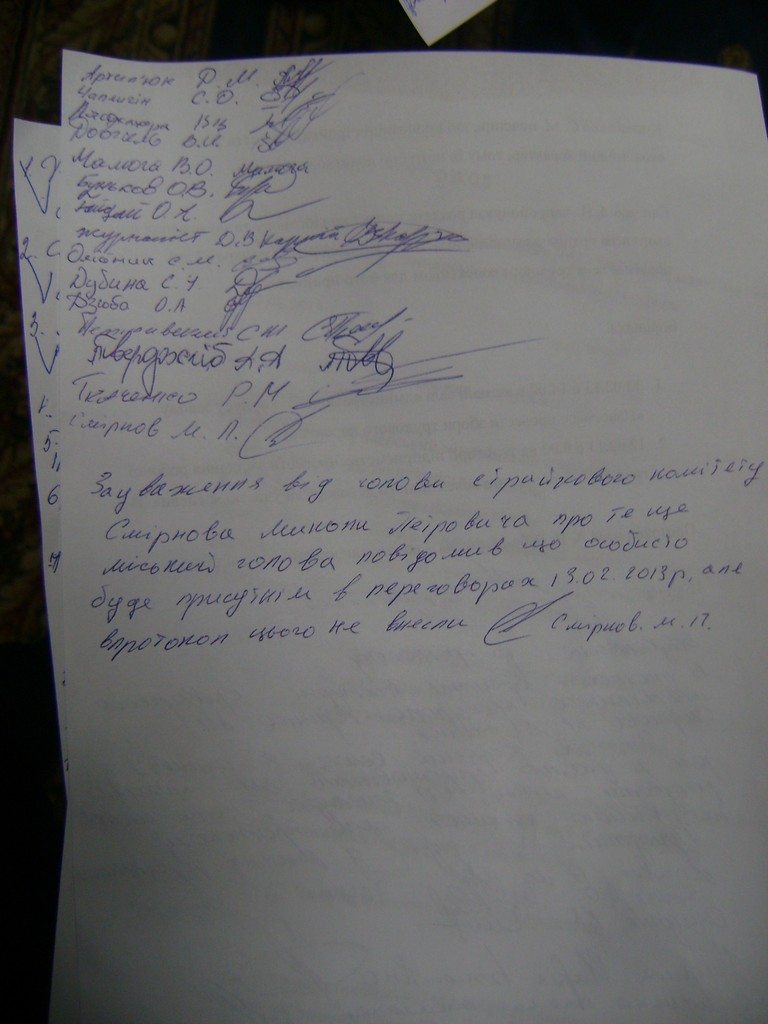 Р. М.
Чаплигін С. О.
В.В.
Довгель В.И
Малюга В.О. Малюга
Буньков О.В.
Найдай О.
журналіст Д.В
Олійник С.М.
Дубина С.
Дзюба О.А
С М
Твердохліб А.А
Ткаченко Р.М
Смірнов М. П.
Зауваження від голови страйкового комітету
Смірнова Миколи Петровича про те що
міський голова повідомив що особисто
буде присутнім в переговорах 13.02.2013 р, але
в протокол цього не внесли Смірнов. М. П.
2. С
3.
5.
6
7